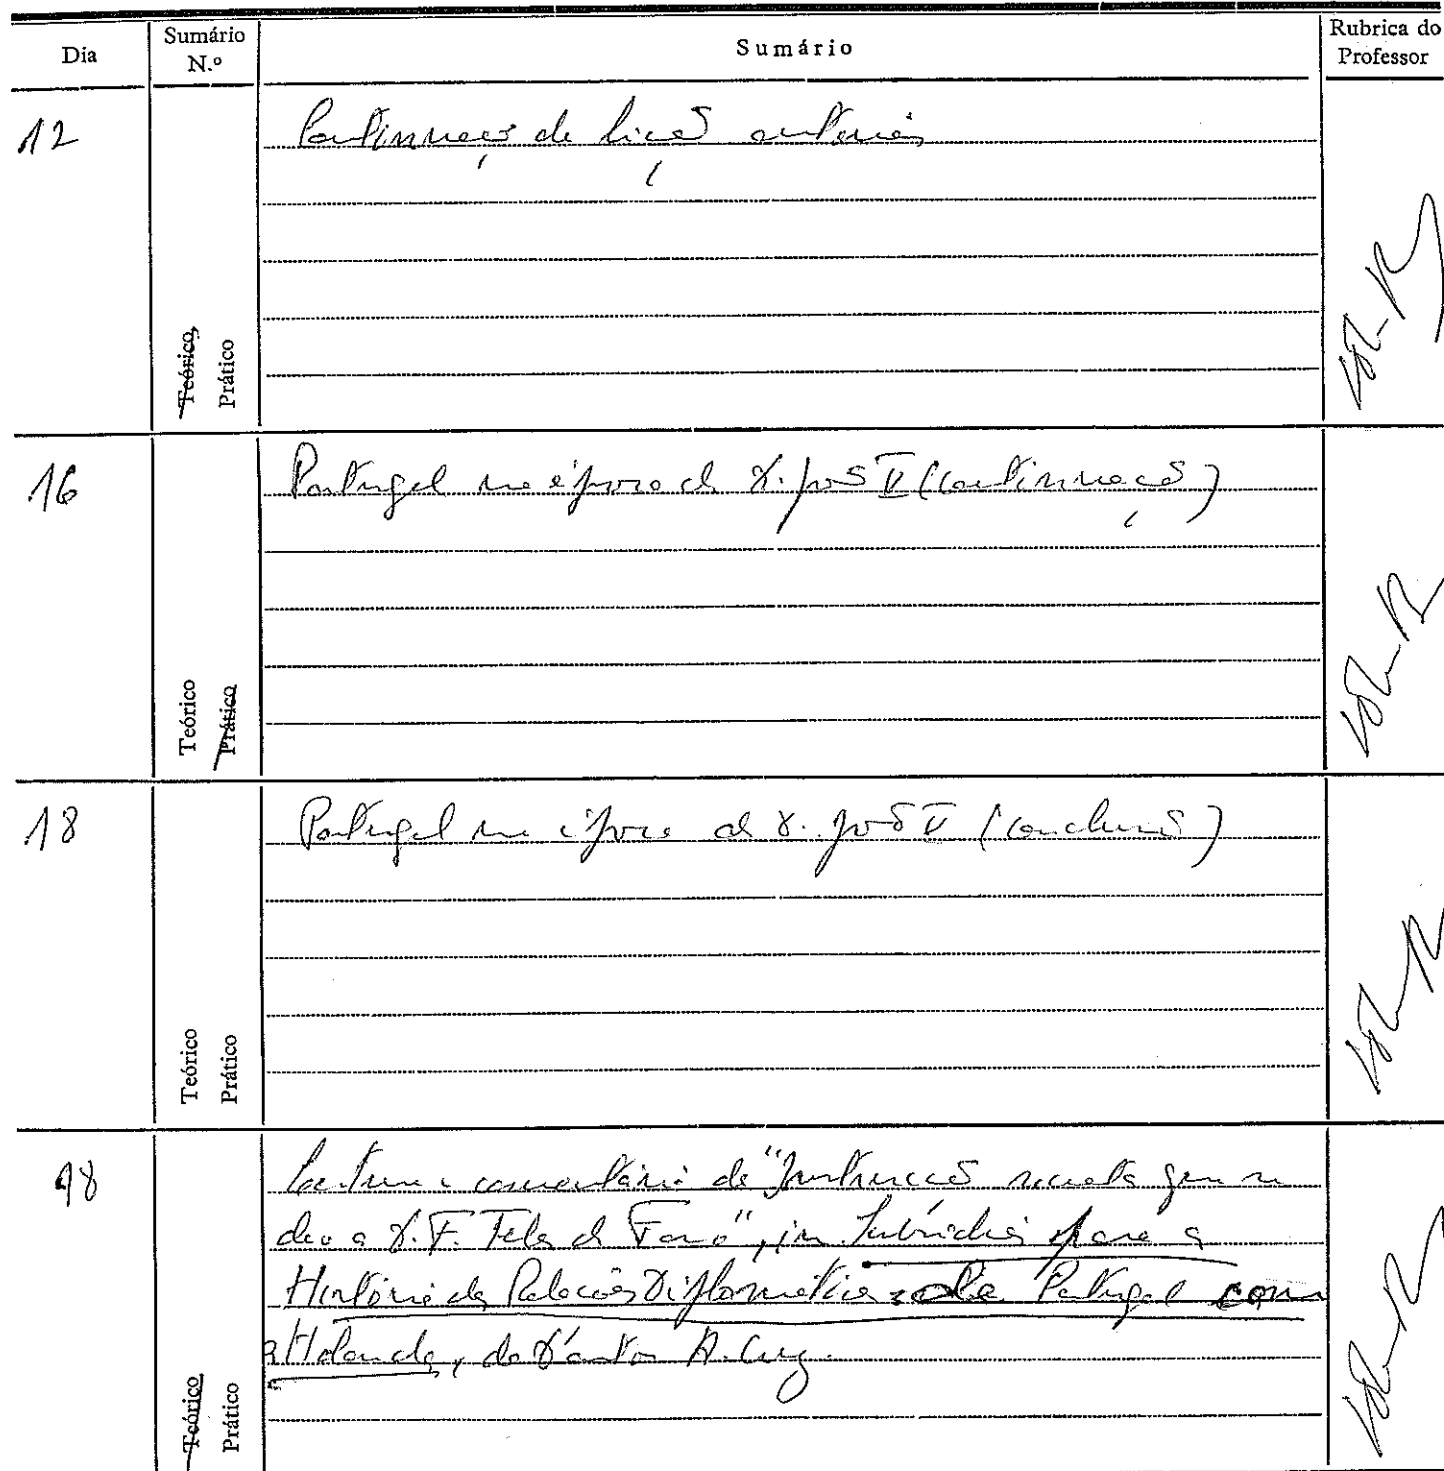 Dia
Sumário
N.º
Sumário
Rubrica do
Professor
12
Teórico
Prático
Continuação da lição anterior
16
Teórico
Prático
Portugal na época de D. João V (continuação)
18
Teórico
Prático
Portugal na época de D. João V (conclusão)
18
Teórico
Prático
Leitura e comentário da "Instrucção secreta que se
deu a D. F. Teles de Faro", in Subsídios para a
História das Relações Diplomáticas de Portugal com
a Holanda, de António Cruz.